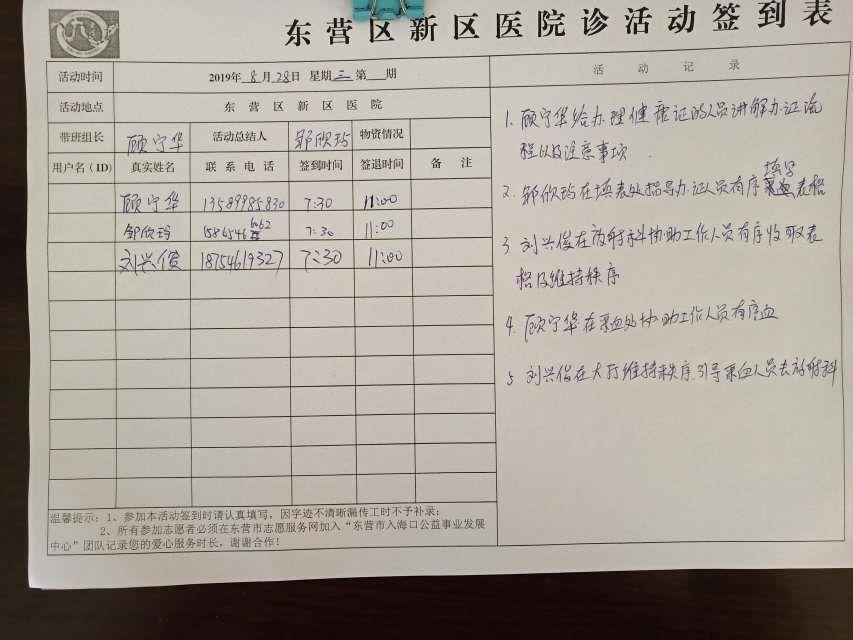 东营区新区医院诊活动签到表
活动时间 2019年8月28日 星期三 第 期
活动地点 东营区新区医院
带班组长 顾宁华 活动总结人 邹欣玲 物资情况
用户名(ID) 真实姓名 联系电话 签到时间 签退时间 备注
顾宁华 13589985830 7:30 11:00
邹欣玲 1586546 6062 7:30 11:00
刘兴俊 18754619327 7:30 11:00
温馨提示:1、参加本活动签到时请认真填写,因字迹不清晰漏传工时不予补录;
2、所有参加志愿者必须在东营市志愿服务网加入“东营市入海口公益事业发展
中心”团队记录您的爱心服务时长,谢谢合作!
活动记录
1. 顾宁华给办理健康证的人员讲解办证流
程以及注意事项.
2. 邹欣玲在填表处指导办证人员有序填写表格
3. 刘兴俊在放射科协助工作人员有序收取表
格及维持秩序
4. 顾宁华在采血处协助工作人员有序血
5 刘兴俊在大厅维持秩序.引导采血人员去放射科